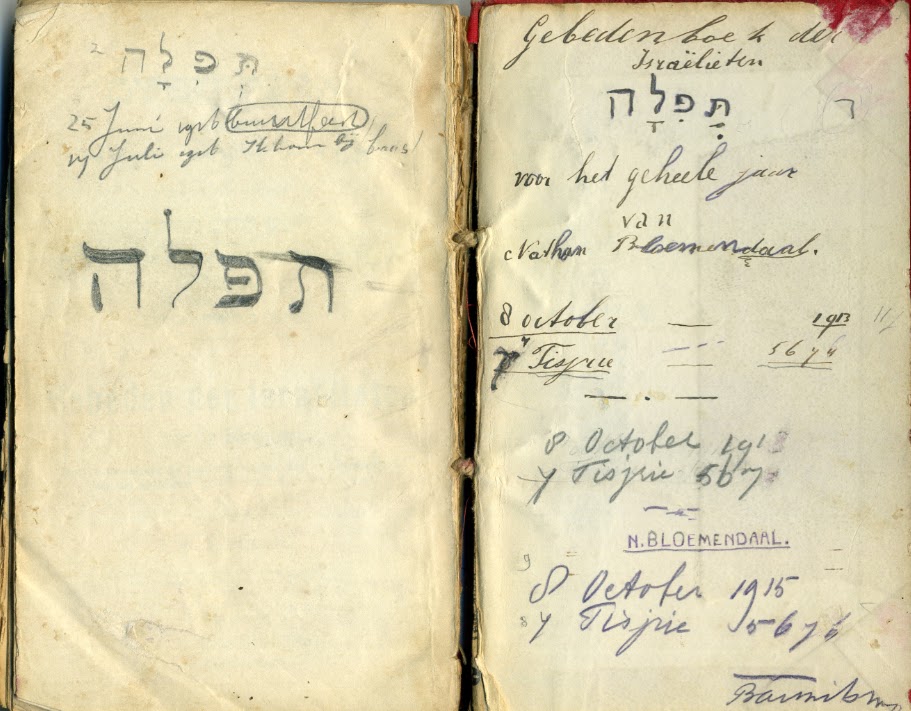 תְּפִלָּה
25 Juni
17 Juli
תפלה
Gebedenboek der
Israëlieten
תְּפִלָּה ר
voor het geheele jaar
van
Nathan Bloemendaal.
8 october — 1913
7 Tisjrie — 567
8 October 191
7 Tisjrie 567
N. BLOEMENDAAL.
8 October 1915
7 Tisjrie 567